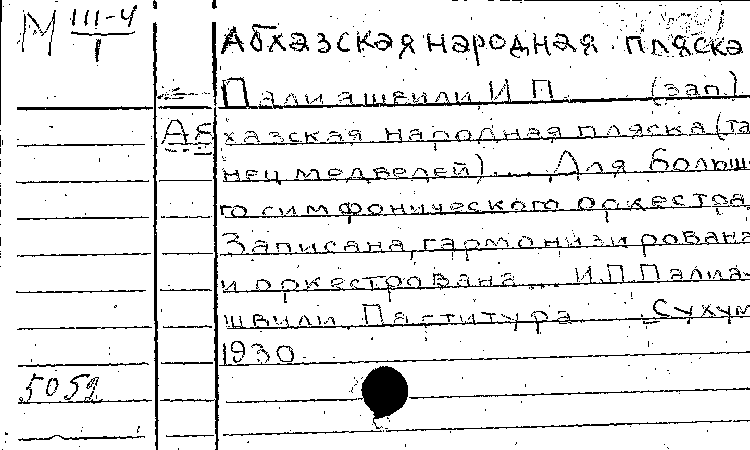 М III-4/1
Абхазская народная пляска
Палиашвили, И.П. (зап.)
Аб
хазская народная пляска (та
нец медведей)... Для больш
го симфонического оркестра.
Записана, гармонизирована
и оркестрована... И.П.Палиа-
швили. Партитура Сухум
1930.
5052